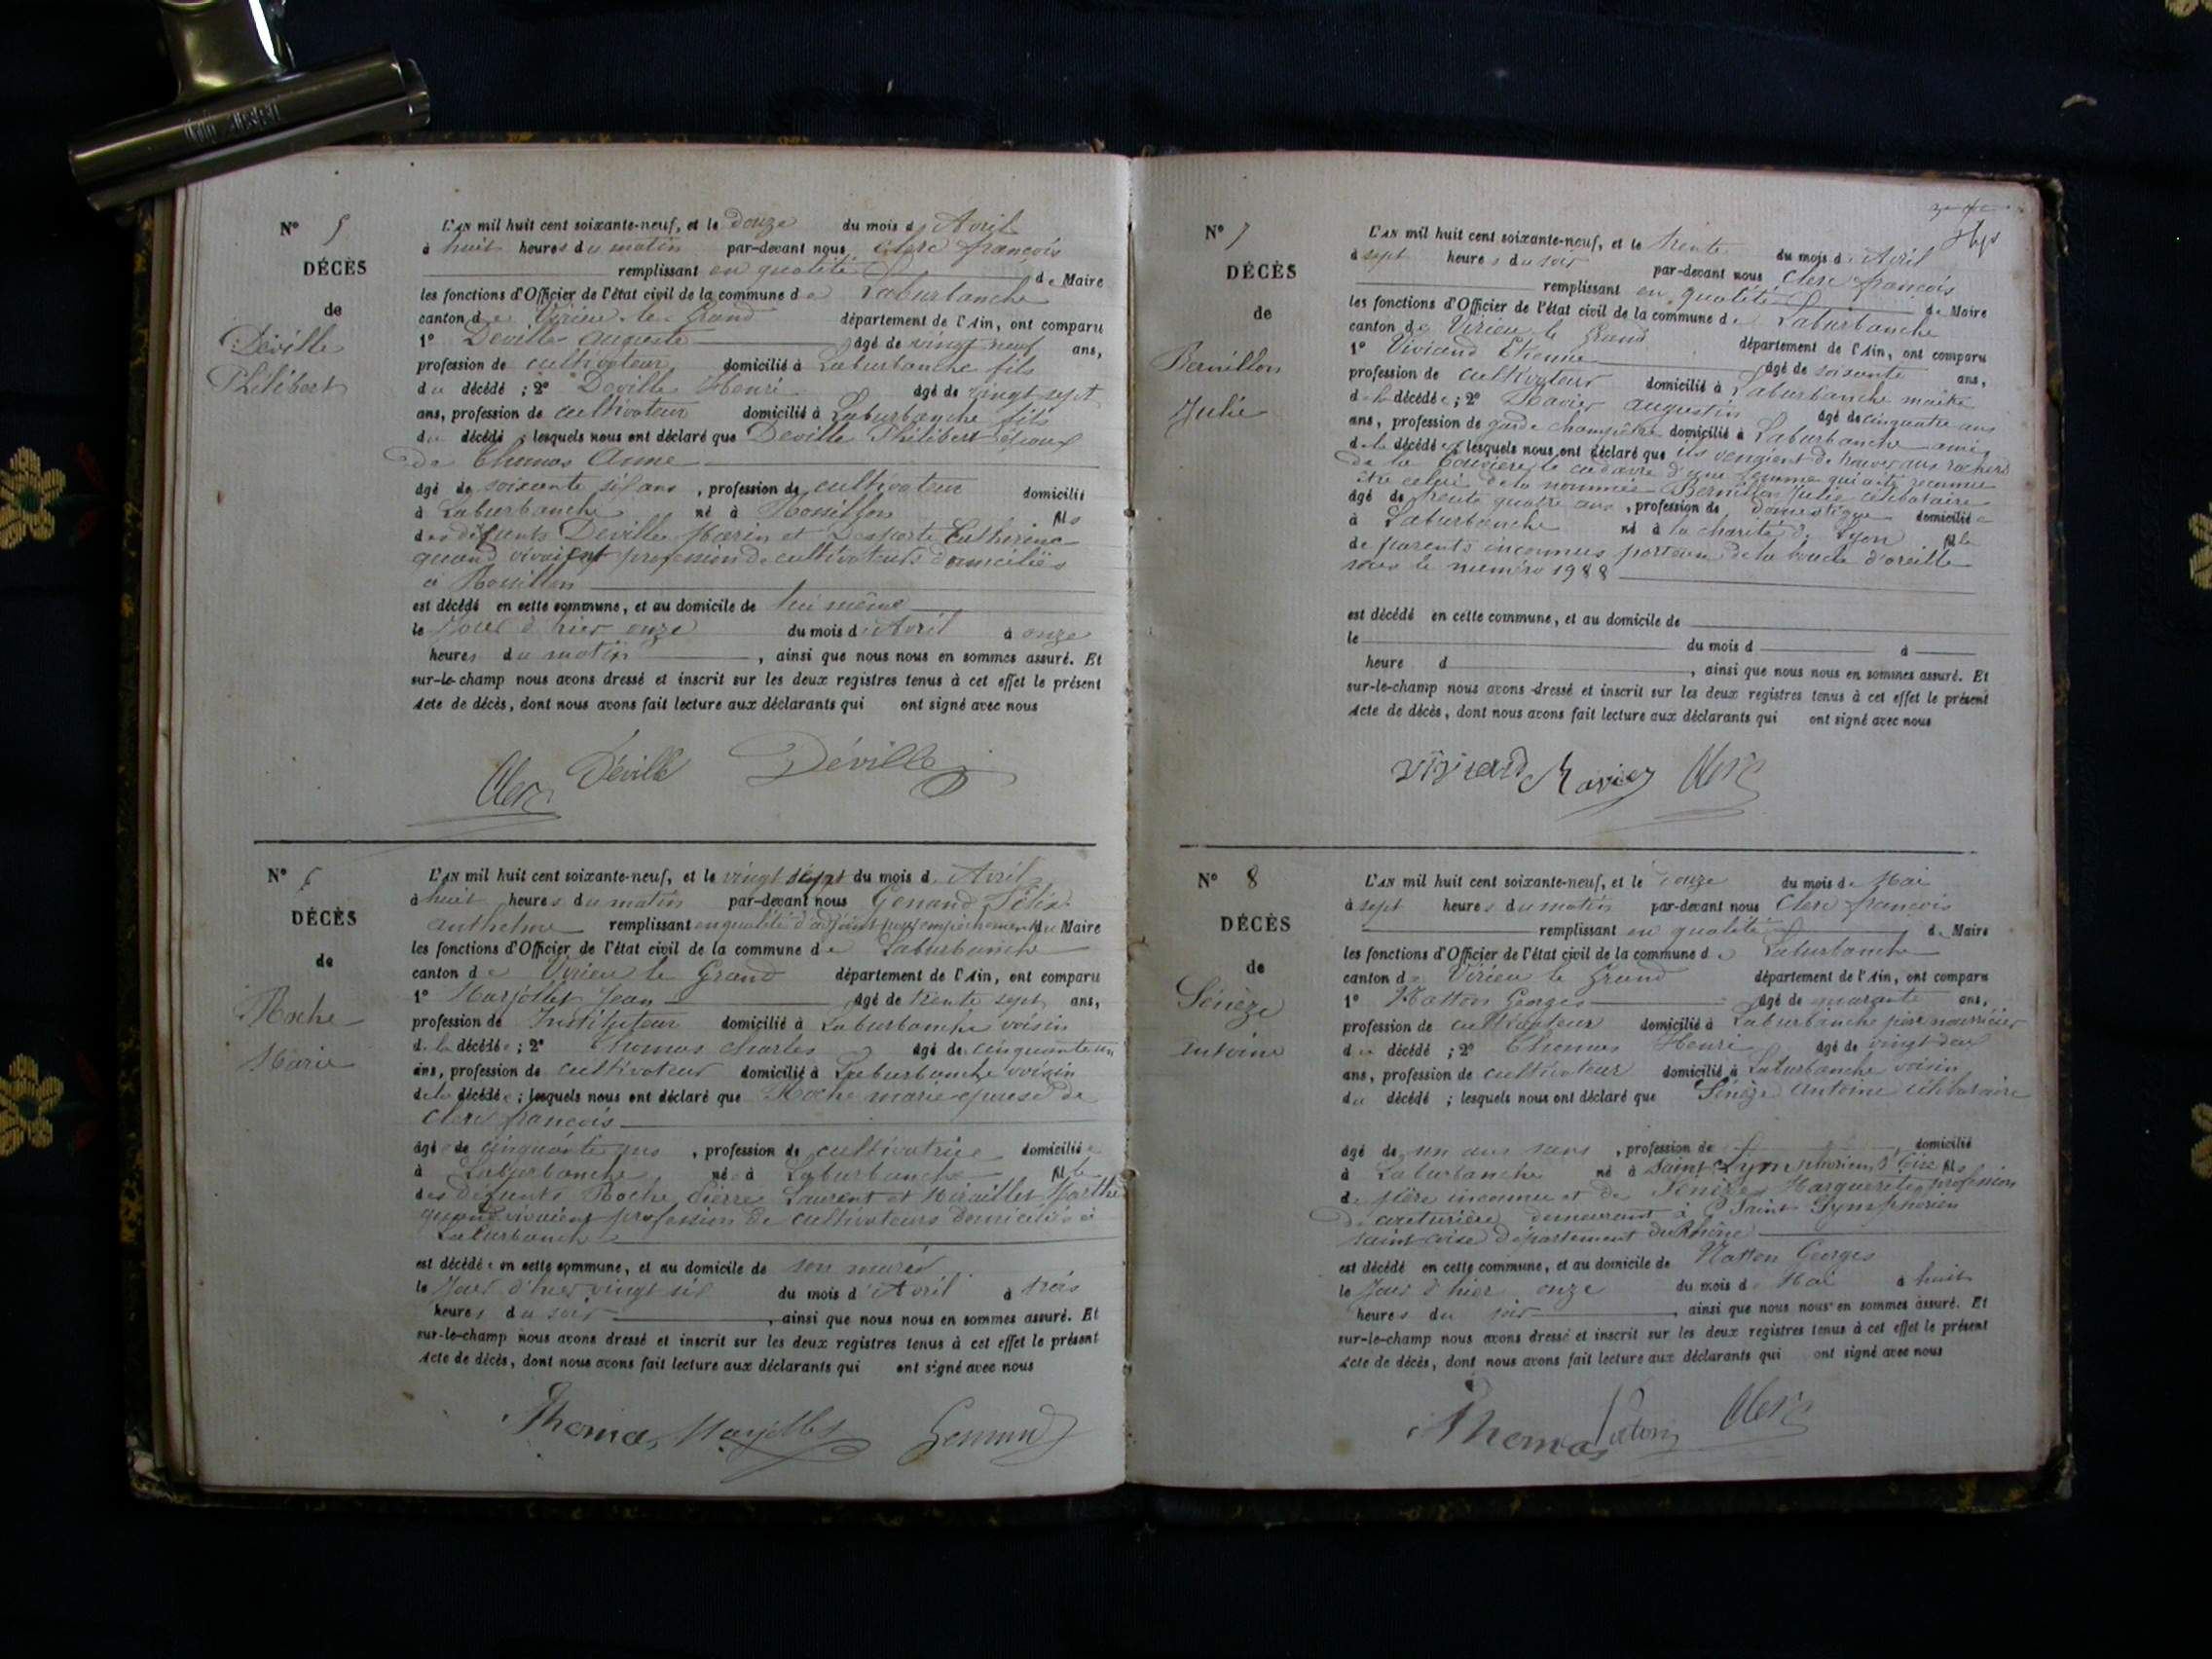 N° 5
DÉCÈS
de
Déville
Philibert
L'AN mil huit cent soixante-neuf, et le douze du mois d'Avril
à huit heures du matin par-devant nous Clerc françois
remplissant en qualité de Maire
les fonctions d'Officier de l'état civil de la commune de Laburbanche
canton de Virieu le Grand département de l'Ain, ont comparu
1° Deville Auguste âgé de vingt neuf ans,
profession de cultivateur domicilié à Laburbanche fils
du décédé ; 2° Deville Henri âgé de vingt sept
ans, profession de cultivateur domicilié à Laburbanche fils
du décédé ; lesquels nous ont déclaré que Deville Philibert époux
de Thomas Anne
âgé de soixante six ans, profession de cultivateur domicilié
à Laburbanche né à Rossillon fils
des défunts Deville Marin et Desporte Catherine
quand vivaient profession de cultivateurs domiciliés
à Rossillon
est décédé en cette commune, et au domicile de lui même
le Jour d'hier onze du mois d'Avril à onze
heures du matin, ainsi que nous nous en sommes assuré. Et
sur-le-champ nous avons dressé et inscrit sur les deux registres tenus à cet effet le présent
Acte de décès, dont nous avons fait lecture aux déclarants qui ont signé avec nous
Clerc Déville Déville
N° 6
DÉCÈS
de
Roche
Marie
L'AN mil huit cent soixante-neuf, et le vingt sept du mois d'Avril
à huit heures du matin par-devant nous Genand Félix
anthelme remplissant en qualité d'adjoint par empêchement du Maire
les fonctions d'Officier de l'état civil de la commune de Laburbanche
canton de Virieu le Grand département de l'Ain, ont comparu
1° Marjollet Jean âgé de trente sept ans,
profession de Instituteur domicilié à Laburbanche voisin
de la décédée ; 2° Thomas Charles âgé de cinquante un
ans, profession de cultivateur domicilié à Laburbanche voisin
de la décédée ; lesquels nous ont déclaré que Roche marie épouse de
Clerc françois
âgée de cinquante ans, profession de cultivatrice domiciliée
à Laburbanche née à Laburbanche fille
des défunts Roche Pierre Laurent et Miraillet Marthe
quand vivaient profession de cultivateurs domiciliés à
Laburbanche
est décédée en cette commune, et au domicile de son mari
le Jour d'hier vingt six du mois d'Avril à trois
heures du soir, ainsi que nous nous en sommes assuré. Et
sur-le-champ nous avons dressé et inscrit sur les deux registres tenus à cet effet le présent
Acte de décès, dont nous avons fait lecture aux déclarants qui ont signé avec nous
Thomas Marjollet Genand
N° 7
DÉCÈS
de
Bernillon
Julie
L'AN mil huit cent soixante-neuf, et le trente du mois d'Avril
à sept heures du soir par-devant nous Clerc françois
remplissant en qualité de Maire
les fonctions d'Officier de l'état civil de la commune de Laburbanche
canton de Virieu le Grand département de l'Ain, ont comparu
1° Viviand Etienne âgé de soixante ans,
profession de cultivateur domicilié à Laburbanche maître
de la décédée ; 2° Ravier augustin âgé de cinquante ans
ans, profession de garde champêtre domicilié à Laburbanche ami
de la décédée lesquels nous ont déclaré que ils venaient de trouver aux rochers
de la le cadavre d'une femme qui a été reconnue
être celui de la nommée Bernillon Julie célibataire
âgé de trente quatre ans, profession de domestique domiciliée
à Laburbanche né à la charité de Lyon fille
de parents inconnus porteur de la boucle d'oreille
sous le numéro 1988
est décédé en cette commune, et au domicile de
le du mois d à
heure d, ainsi que nous nous en sommes assuré. Et
sur-le-champ nous avons dressé et inscrit sur les deux registres tenus à cet effet le présent
Acte de décès, dont nous avons fait lecture aux déclarants qui ont signé avec nous
viviand Ravier Clerc
N° 8
DÉCÈS
de
Sénèze
Antoine
L'AN mil huit cent soixante-neuf, et le douze du mois de Mai
à sept heures du matin par-devant nous Clerc françois
remplissant en qualité de Maire
les fonctions d'Officier de l'état civil de la commune de Laburbanche
canton de Virieu le Grand département de l'Ain, ont comparu
1° Natton Georges âgé de quarante ans,
profession de cultivateur domicilié à Laburbanche père nourricier
du décédé ; 2° Thomas Henri âgé de vingt deux
ans, profession de cultivateur domicilié à Laburbanche voisin
du décédé ; lesquels nous ont déclaré que Sénèze Antoine célibataire
âgé de un ans sans, profession de domicilié
à Laburbanche né à Saint Symphorien d'Coise fils
de père inconnu et de Sénèze Marguerite profession
de couturière demeurant à Saint Symphorien
saint coise département du Rhône
est décédé en cette commune, et au domicile de Natton Georges
le Jour d'hier onze du mois de Mai à huit
heures du soir, ainsi que nous nous en sommes assuré. Et
sur-le-champ nous avons dressé et inscrit sur les deux registres tenus à cet effet le présent
Acte de décès, dont nous avons fait lecture aux déclarants qui ont signé avec nous
Thomas Natton Clerc